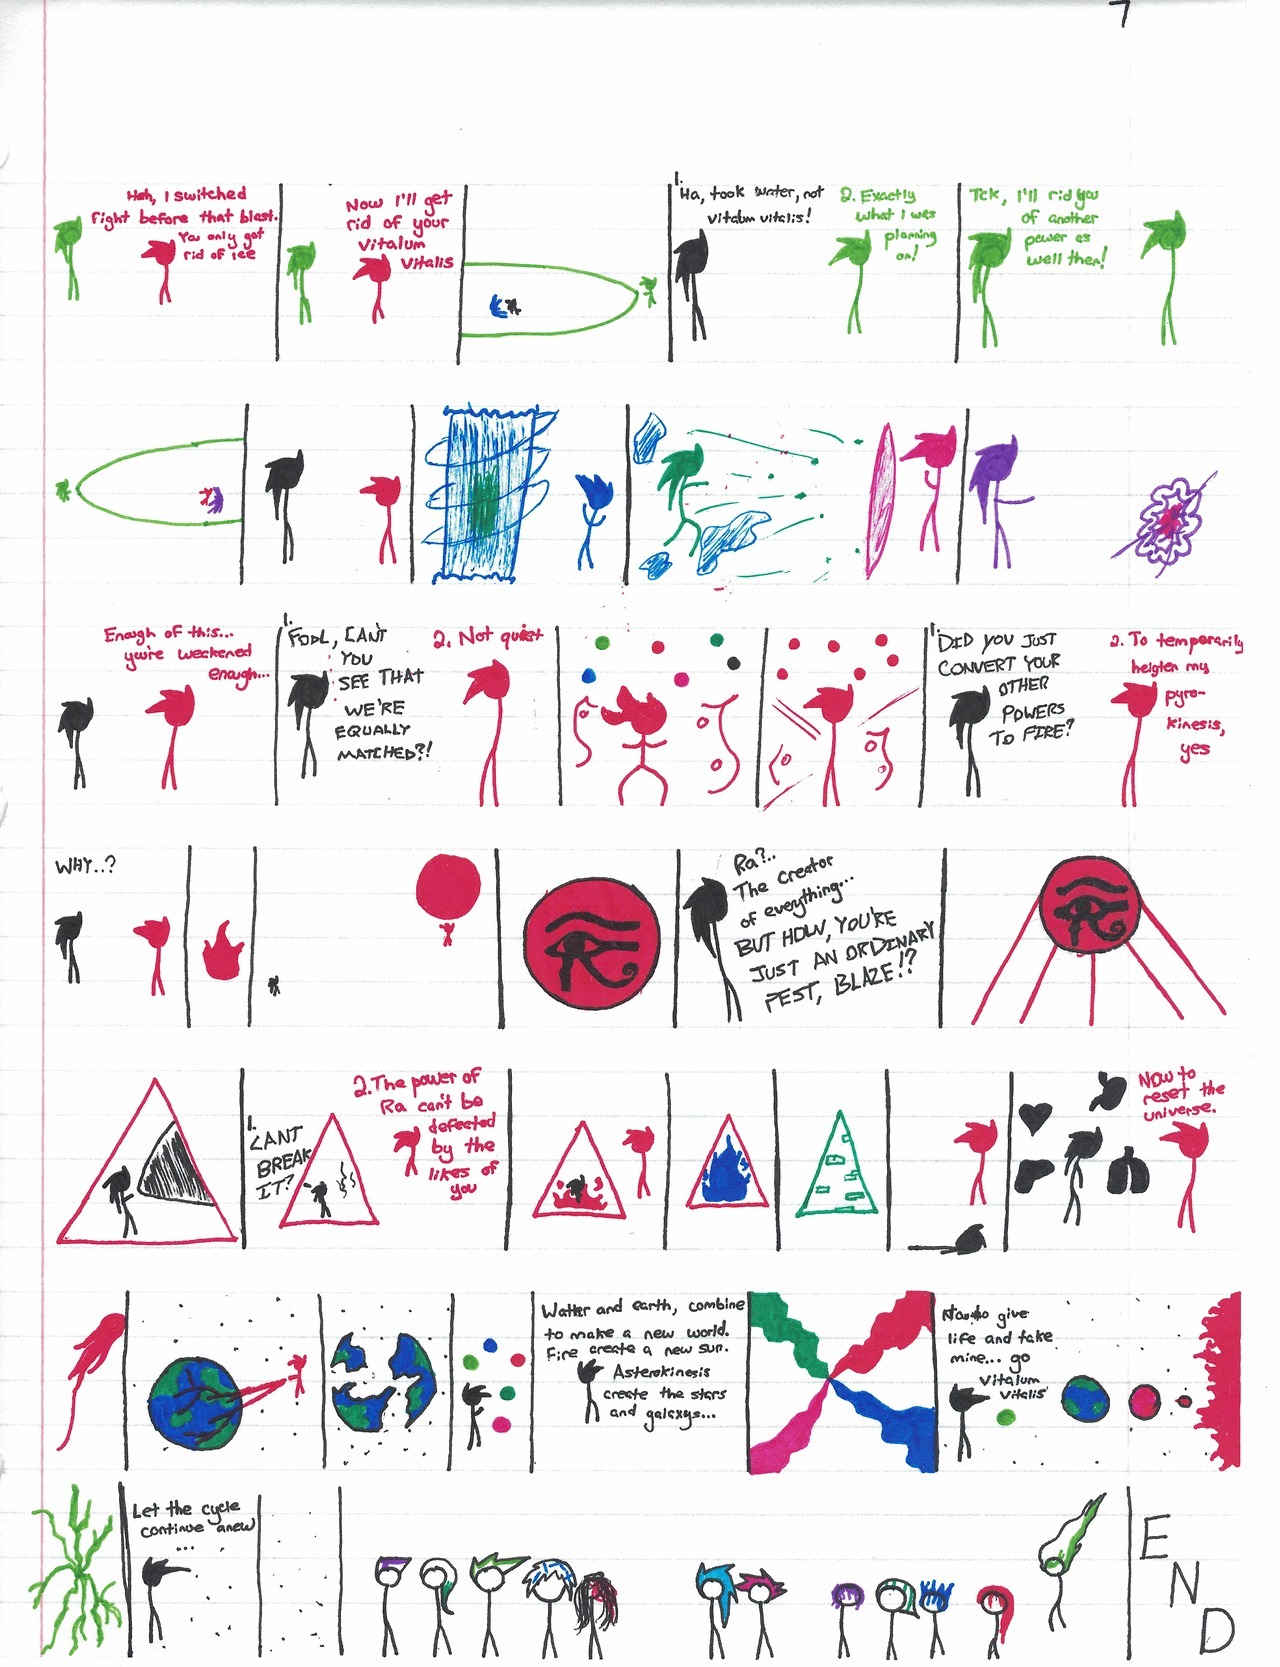 7
Hah, I switched
fight before that blast.
You only got
rid of ice
Now I'll get
rid of your
Vitalum
Vitalis
1.
Ha, took water, not
vitalum vitalis!
2. Exactly
what I was
planning
on!
Tck, I'll rid you
of another
power as
well then!
Enough of this...
you're weakened
enough...
1.
FOOL, CAN'T
YOU
SEE THAT
WE'RE
EQUALLY
MATCHED?!
2. Not quiet
1.
DID YOU JUST
CONVERT YOUR
OTHER
POWERS
TO FIRE?
2. To temporarily
heigten my
pyro-
kinesis,
yes
WHY..?
Ra?..
The creator
of everything...
BUT HOW, YOU'RE
JUST AN ORDINARY
PEST, BLAZE!?
1.
CANT
BREAK
IT?
2. The power of
Ra can't be
defected
by the
likes of
you
Now to
reset the
universe.
Watter and earth, combine
to make a new world.
Fire create a new sun.
Asterokinesis
create the stars
and galaxys...
Now to give
life and take
mine... go
Vitalum
Vitalis
Let the cycle
continue anew
...
E
N
D